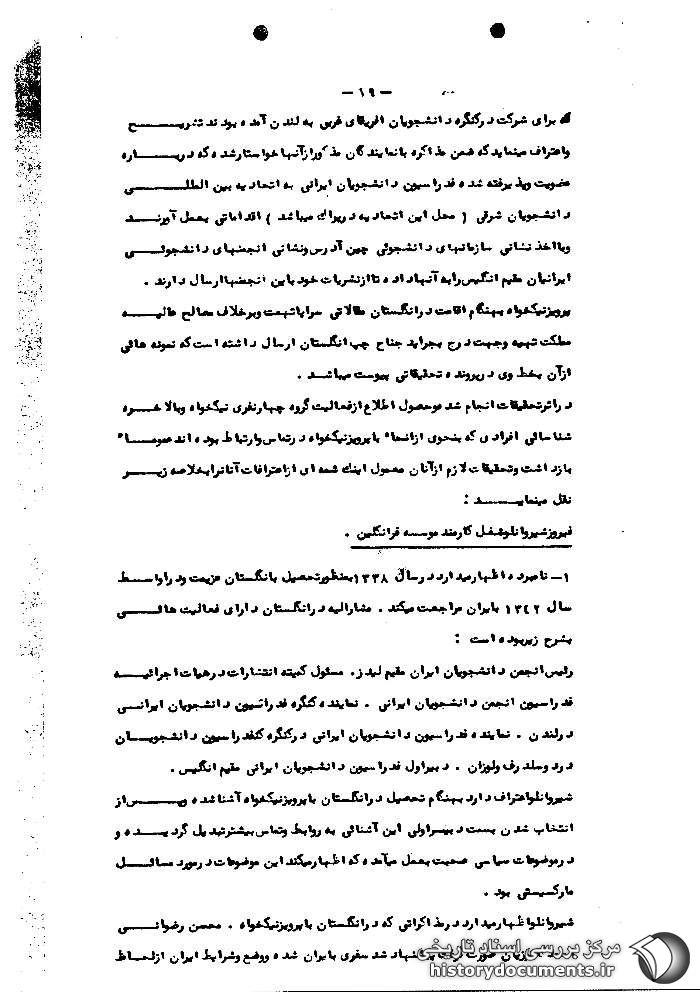 — ۱۹ —
که برای شرکت در کنگره دانشجویان افریقای غربی به لندن آمده بودند تشریح
واعتراف مینماید که ضمن مذاکره با نمایندگان مذکور از آنها خواستار شده که درباره
عضویت و پذیرفته شده فدراسیون دانشجویان ایرانی به اتحادیه بین المللی
دانشجویان شرقی ( محل این اتحادیه در پراک میباشد ) اقداماتی بعمل آورند
وبا اخذ نشانی سازمانهای دانشجوئی چین آدرس ونشانی انجمنهای دانشجوئی
ایرانیان مقیم انگلیس رابه آنها داده تا از نشریات خود باین انجمنها ارسال دارند .
پرویز نیکخواه بهنگام اقامت در انگلستان مقالاتی سراپا تهمت وبرخلاف مصالح عالیه
مملکت تهیه وجهت درج بجراید جناح چپ انگلستان ارسال داشته است که نمونه هائی
از آن بخط وی در پرونده تحقیقاتی پیوست میباشد .
در اثر تحقیقات انجام شده محصول اطلاع از فعالیت گروه چهار نفری نیکخواه وبالاخره
شناسائی افرادی که بنحوی از انحاء با پرویز نیکخواه در تماس وارتباط بوده اند عموماً
بازداشت وتحقیقات لازم از آنان معمول اینک شمه ای از اعترافات آنانرا بخلاصه زیر
نقل مینماید :
فیروز شیروانلو شغل کارمند موسسه فرانکلین .
۱ – نامبرده اظهار میدارد در سال ۱۳۳۸ بمنظور تحصیل بانگلستان عزیمت ودر اواسط
سال ۱۳۴۲ بایران مراجعت میکند . مشارالیه در انگلستان دارای فعالیت هائی
بشرح زیر بوده است :
رئیس انجمن دانشجویان ایران مقیم لیدز . مسئول کمیته انتشارات در هیات اجرائیه
فدراسیون انجمن دانشجویان ایرانی . نماینده کنگره فدراسیون دانشجویان ایرانی
در لندن . نماینده فدراسیون دانشجویان ایرانی در کنگره کنفدراسیون دانشجویان
در دوسلدرف ولوزان . دبیر اول فدراسیون دانشجویان ایرانی مقیم انگلیس .
شیروانلو اعتراف دارد بهنگام تحصیل در انگلستان با پرویز نیکخواه آشنا شده وپس از
انتخاب شدن بسمت دبیر اولی این آشنائی به روابط وتماس بیشتر تبدیل گردیده و
در موضوعات سیاسی صحبت بعمل میآمده که اظهار میکند این موضوعات در مورد مسائل
مارکسیستی بود .
شیروانلو اظهار میدارد در مذاکراتی که در انگلستان با پرویز نیکخواه . محسن رضوانی
صورت گرفت پیشنهاد شد سفری بایران شده ووضع وشرایط ایران از لحاظ
مرکز بررسی اسناد تاریخی
historydocuments.ir